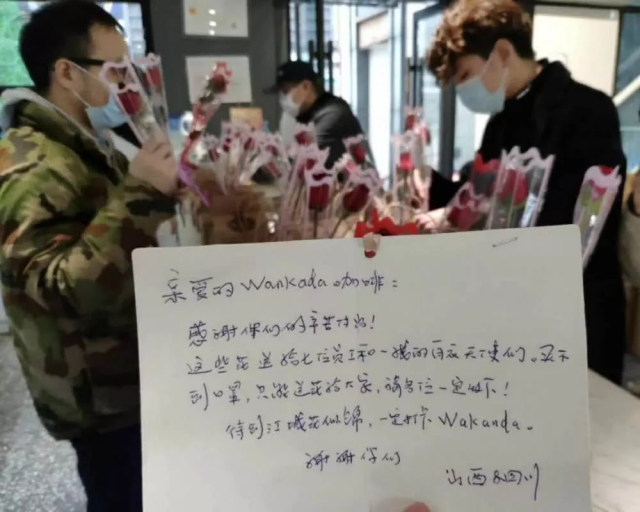 亲爱的 Wankada 咖啡：
感谢你们的辛苦付出！
这些花送给七位员工和一线的白衣天使们。买不
到口罩，只能送花给大家，请各位一定收下！
待到江城花似锦，一定打卡 Wakanda。
谢谢你们
山西&四川